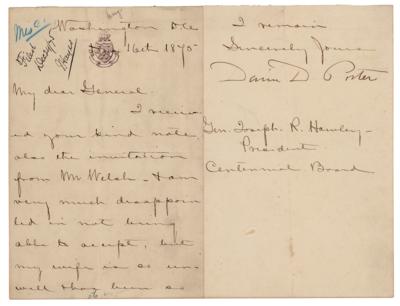 Washington D.C.
16th 1875
My dear General.
I receiv
ed your kind note,
also the invitation
from Mr Welsh - I am
very much disappoin
ted in not being
able to accept, but
my wife is so un-
well & has been so
I remain
Sincerely Yours
David D. Porter
Gen. Joseph R. Hawley -
President
Centennial Board